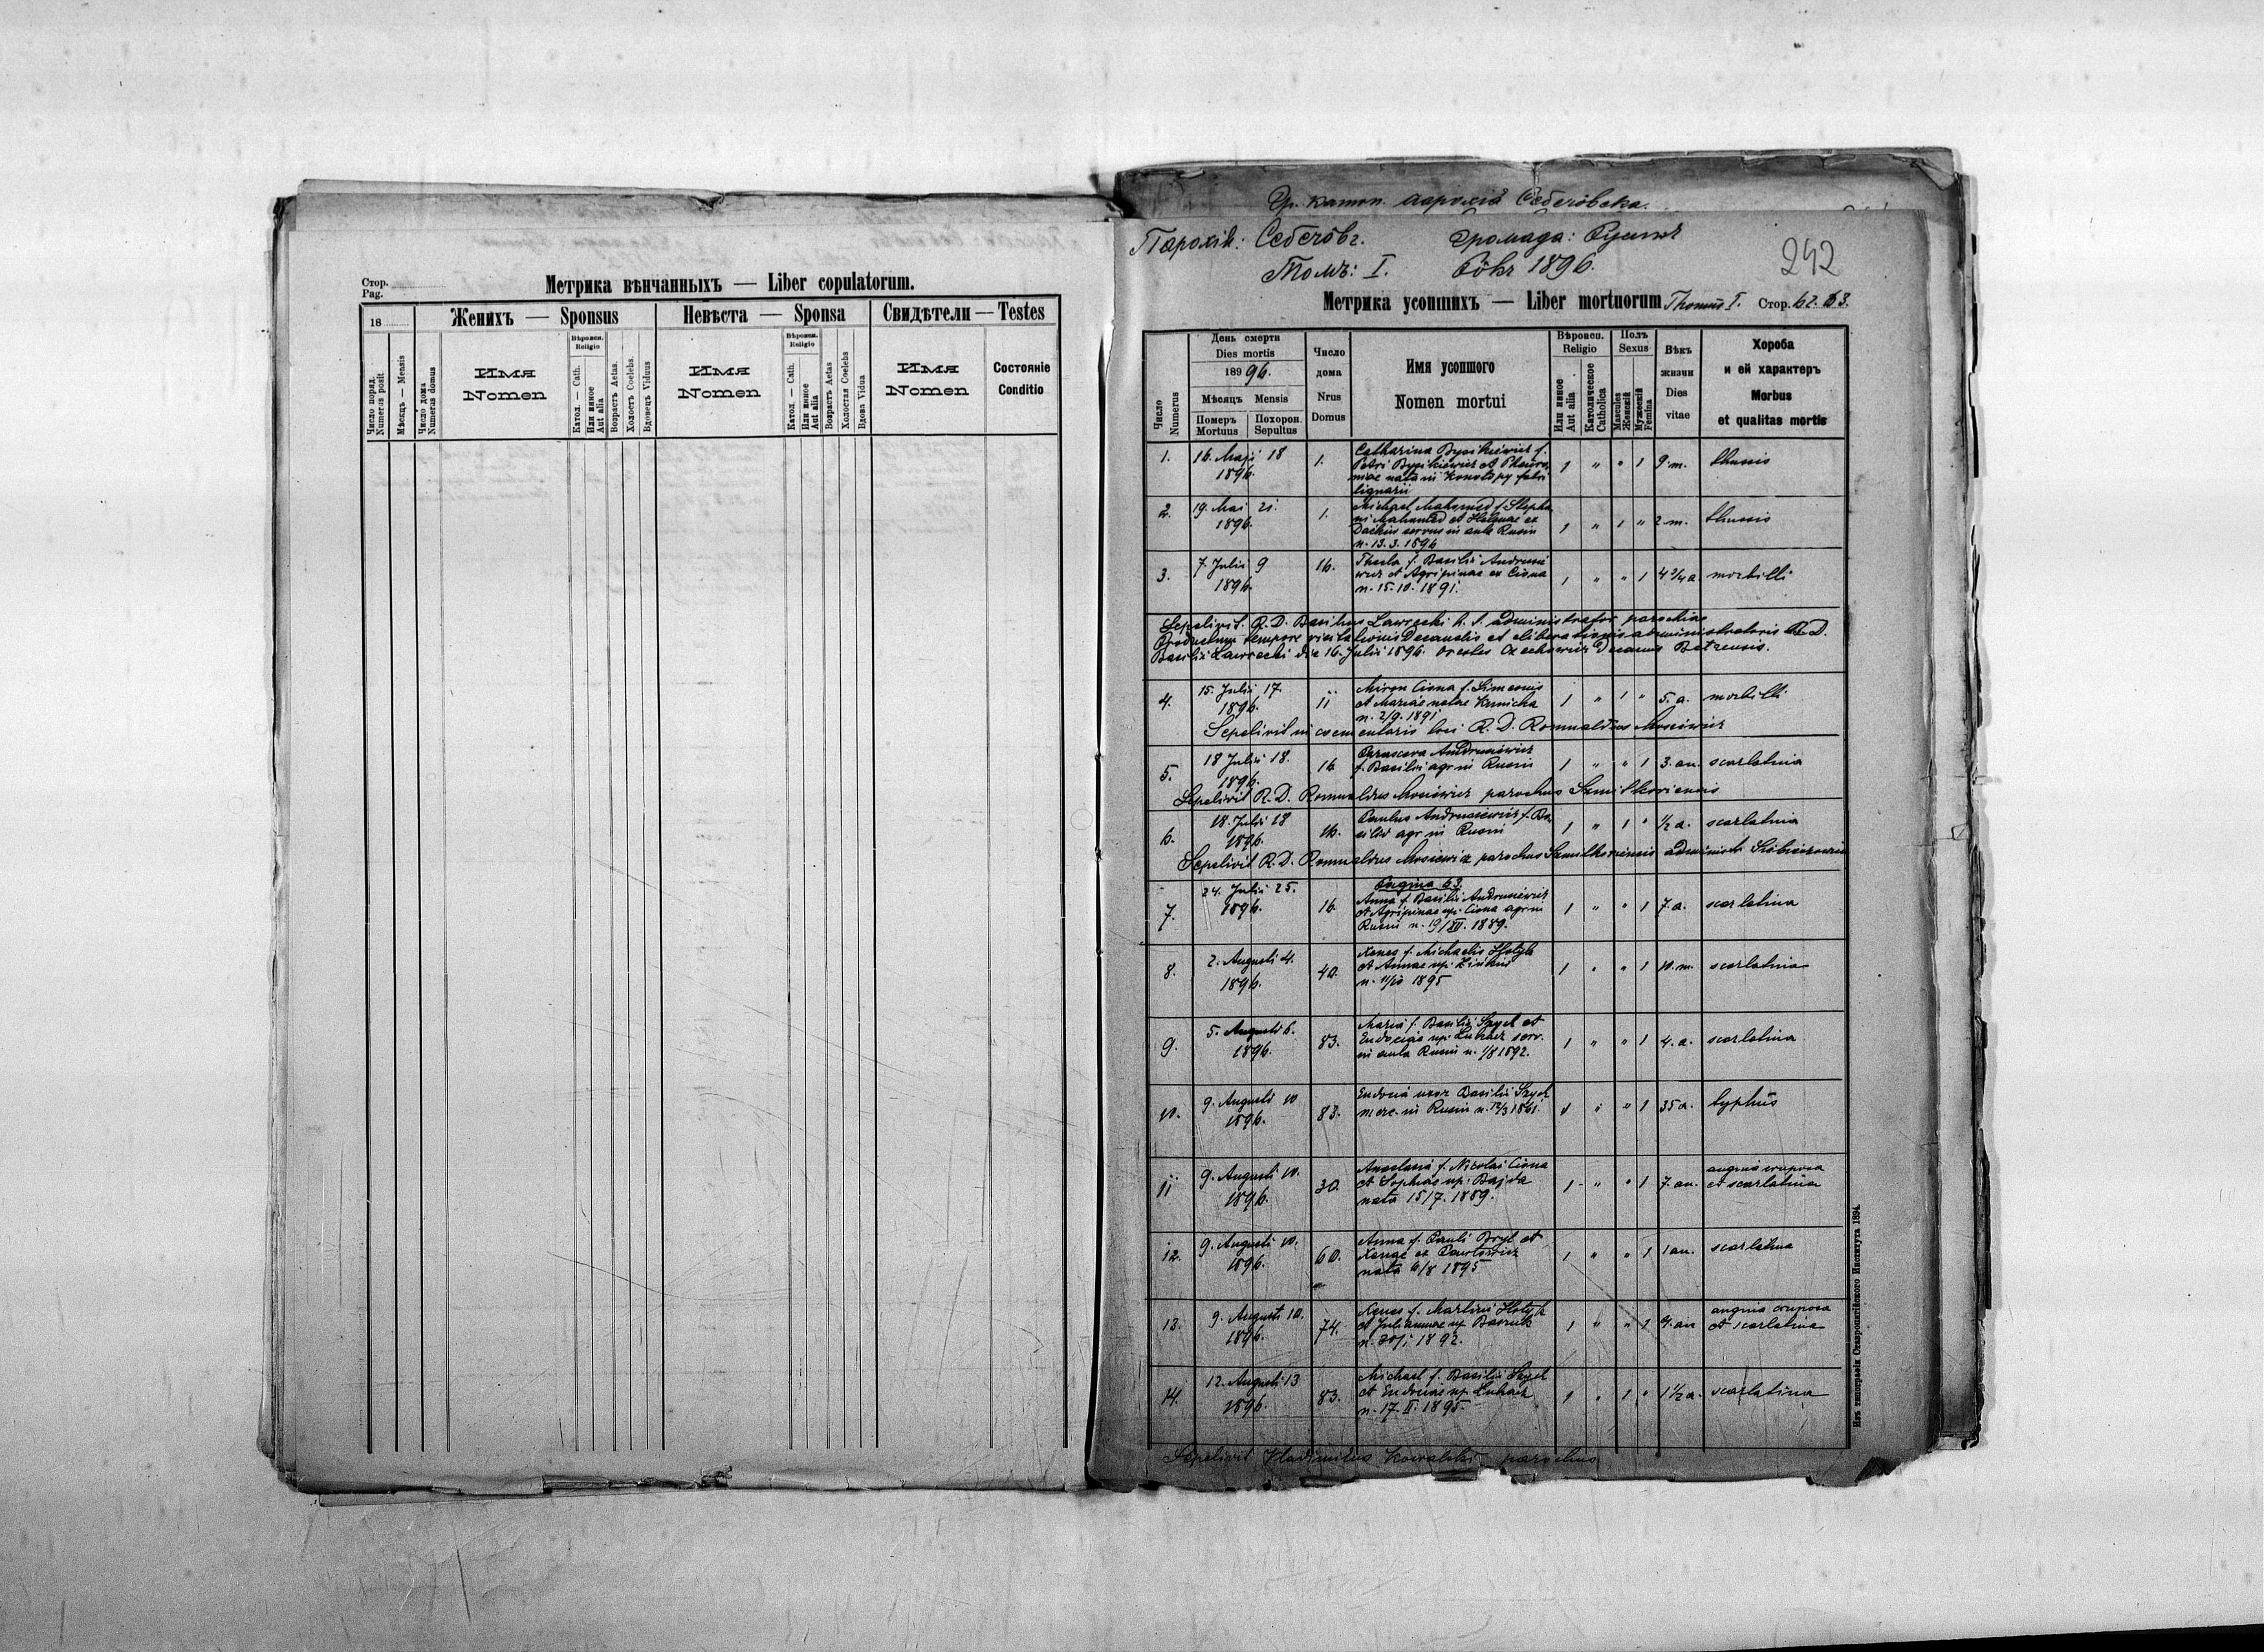 Стор.
Pag.
Метрика вѣнчанныхъ — Liber copulatorum.
18
Женихъ — Sponsus
Невѣста — Sponsa
Свидѣтели — Testes
Число поряд.
Numerus posit
Мѣсяцъ — Mensis
Число дома
Numerus domus
Имя
Nomen
Вѣроисп.
Religio
Катол. — Cath.
Или инное
Aut alia
Возрастъ Aetas.
Холостъ Coelebs.
Вдовецъ Viduus
Имя
Nomen
Вѣроисп.
Religio
Катол. — Cath.
Или инное
Aut alia
Возрастъ Aetas
Холостая Coelebs
Вдова Vidua
Имя
Nomen
Состояніе
Conditio
Гр. катол. парохія
Парохія: Себечôвъ. Громада: Русинъ
242
Томъ: I. Рôкъ 1896.
Метрика усопшихъ — Liber mortuorum Thomus I. Стор. 62. 63.
Число
Numerus
День смерти
Dies mortis
1896.
Мѣсяцъ Mensis
Померъ
Mortuus
Похорон.
Sepultus
Число
дома
Nrus
Domus
Имя усопшого
Nomen mortui
Вѣроисп.
Religio
Или инное
Aut alia
Католическое
Catholica
Полъ
Sexus
Mascules
Женскій
Мужескій
Femina
Вѣкъ
жизни
Dies
vitae
Хороба
и ей характеръ
Morbus
et qualitas mortis
1. 16. Maji 18 1896. 1. Catharina f.
Petri et
nata in Konotopy fabri
lignarii 1 " " 1 9. m. thussis
2. 19. Mai 21. 1896. 1. Michael Mahomed f. Stepha
ni Mahomed et Helenae ex
servus in aula Rusin
n. 13. 3. 1896 1 " 1 " 2 m. thussis
3. 7. Julii 9 1896. 16. Thecla f. Basilii Andrusie
wicz et Agripinae ex Ciona
n. 15. 10. 1891. 1 " " 1 4 3/4 a. morbilli
Sepelivit. R. D. Basilius Lawrecki h. t. administrator parochiae
Productum tempore visitationis Decanalis et administratoris R. D.
Basilii Lawrecki die 16. Julii 1896. Orestes Czechowicz Decanus Belzensis.
4. 15. Julii 17. 1896. 11 Miron Ciona f. Simeonis
et Mariae natae
n. 2/9. 1891 1 " 1 " 5. a. morbilli
Sepelivit in loci R. D. Romualdus Mosiewicz
5. 18 Julii 18. 1896. 16 Parasceva Andrusiewicz
f. Basilii agr in Rusin 1 " " 1 3. an. scarlatina
Sepelivit R. D. Romualdus Mosiewicz parochus
6. 18. Julii 18 1896. 16. Paulus Andrusiewicz f. Ba
silii agr in Rusin 1 " 1 " 1/2 a. scarlatina
Sepelivit R. D. Romualdus Mosiewicz parochus
Pagina 63.
7. 24. Julii 25. 1896. 16. Anna f. Basilii Andrusiewicz
et Agripinae np. Ciona agr in
Rusin n. 19/XII. 1889. 1 " " 1 7. a. scarlatina
8. 2. Augusti 4. 1896. 40. Xenes f. Michaelis Hotyk
et Annae np.
1895 1 " " 1 10. m. scarlatina
9. 5. Augusti 6. 1896. 83. Maria f. Basilii Szych et
Eudociae np. Luhacz serv.
in aula Rusin n. 1/8 1892. 1 " " 1 4. a. scarlatina
10. 9. Augusti 10 1896. 83. Eudocia uxor Basilii Szych
merc. in Rusin n. 12/3 1861. 1 " " 1 35 a. typhus
11 9. Augusti 10. 1896. 30. Anastasia f. Nicolai Ciona
et Sophiae np. Bajda
nata 15/7. 1889. 1 " " 1 7. an. angina cruposa
et scarlatina
12. 9. Augusti 10. 1896. 60. Anna f. Pauli Bryl et
Xenae ex Pawłowicz
nata 6/8 1895 1 " " 1 1 an. scarlatina
13. 9. Augusti 10. 1896. 74. Xenes f. Martini Hotyk
et Juliannae np.
1892. 1 " " 1 4. an angina cruposa
et scarlatina
14. 12. Augusti 13 1896. 83. Michael f. Basilii Szych
et Eudociae np. Luhacz
n. 17. II. 1895. 1 " 1 " 1 1/2 a. scarlatina
Sepelivit Vladimirus Kowalski parochus
Изъ типографіи Ставропигійского Института 1894.